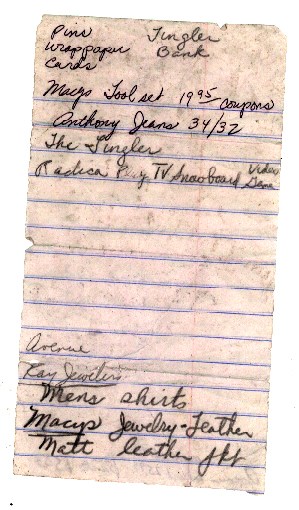 Pins
Tingler
wrappaper
Bank
Cards
Macys Tool set 19.95 coupons
Anthony Jeans 34/32
The Tingler
Radica Play TV Snowboard Video Game
Avenue
Kay Jewelers
Mens shirts
Macys Jewelry-Leather
Matt leather jkt